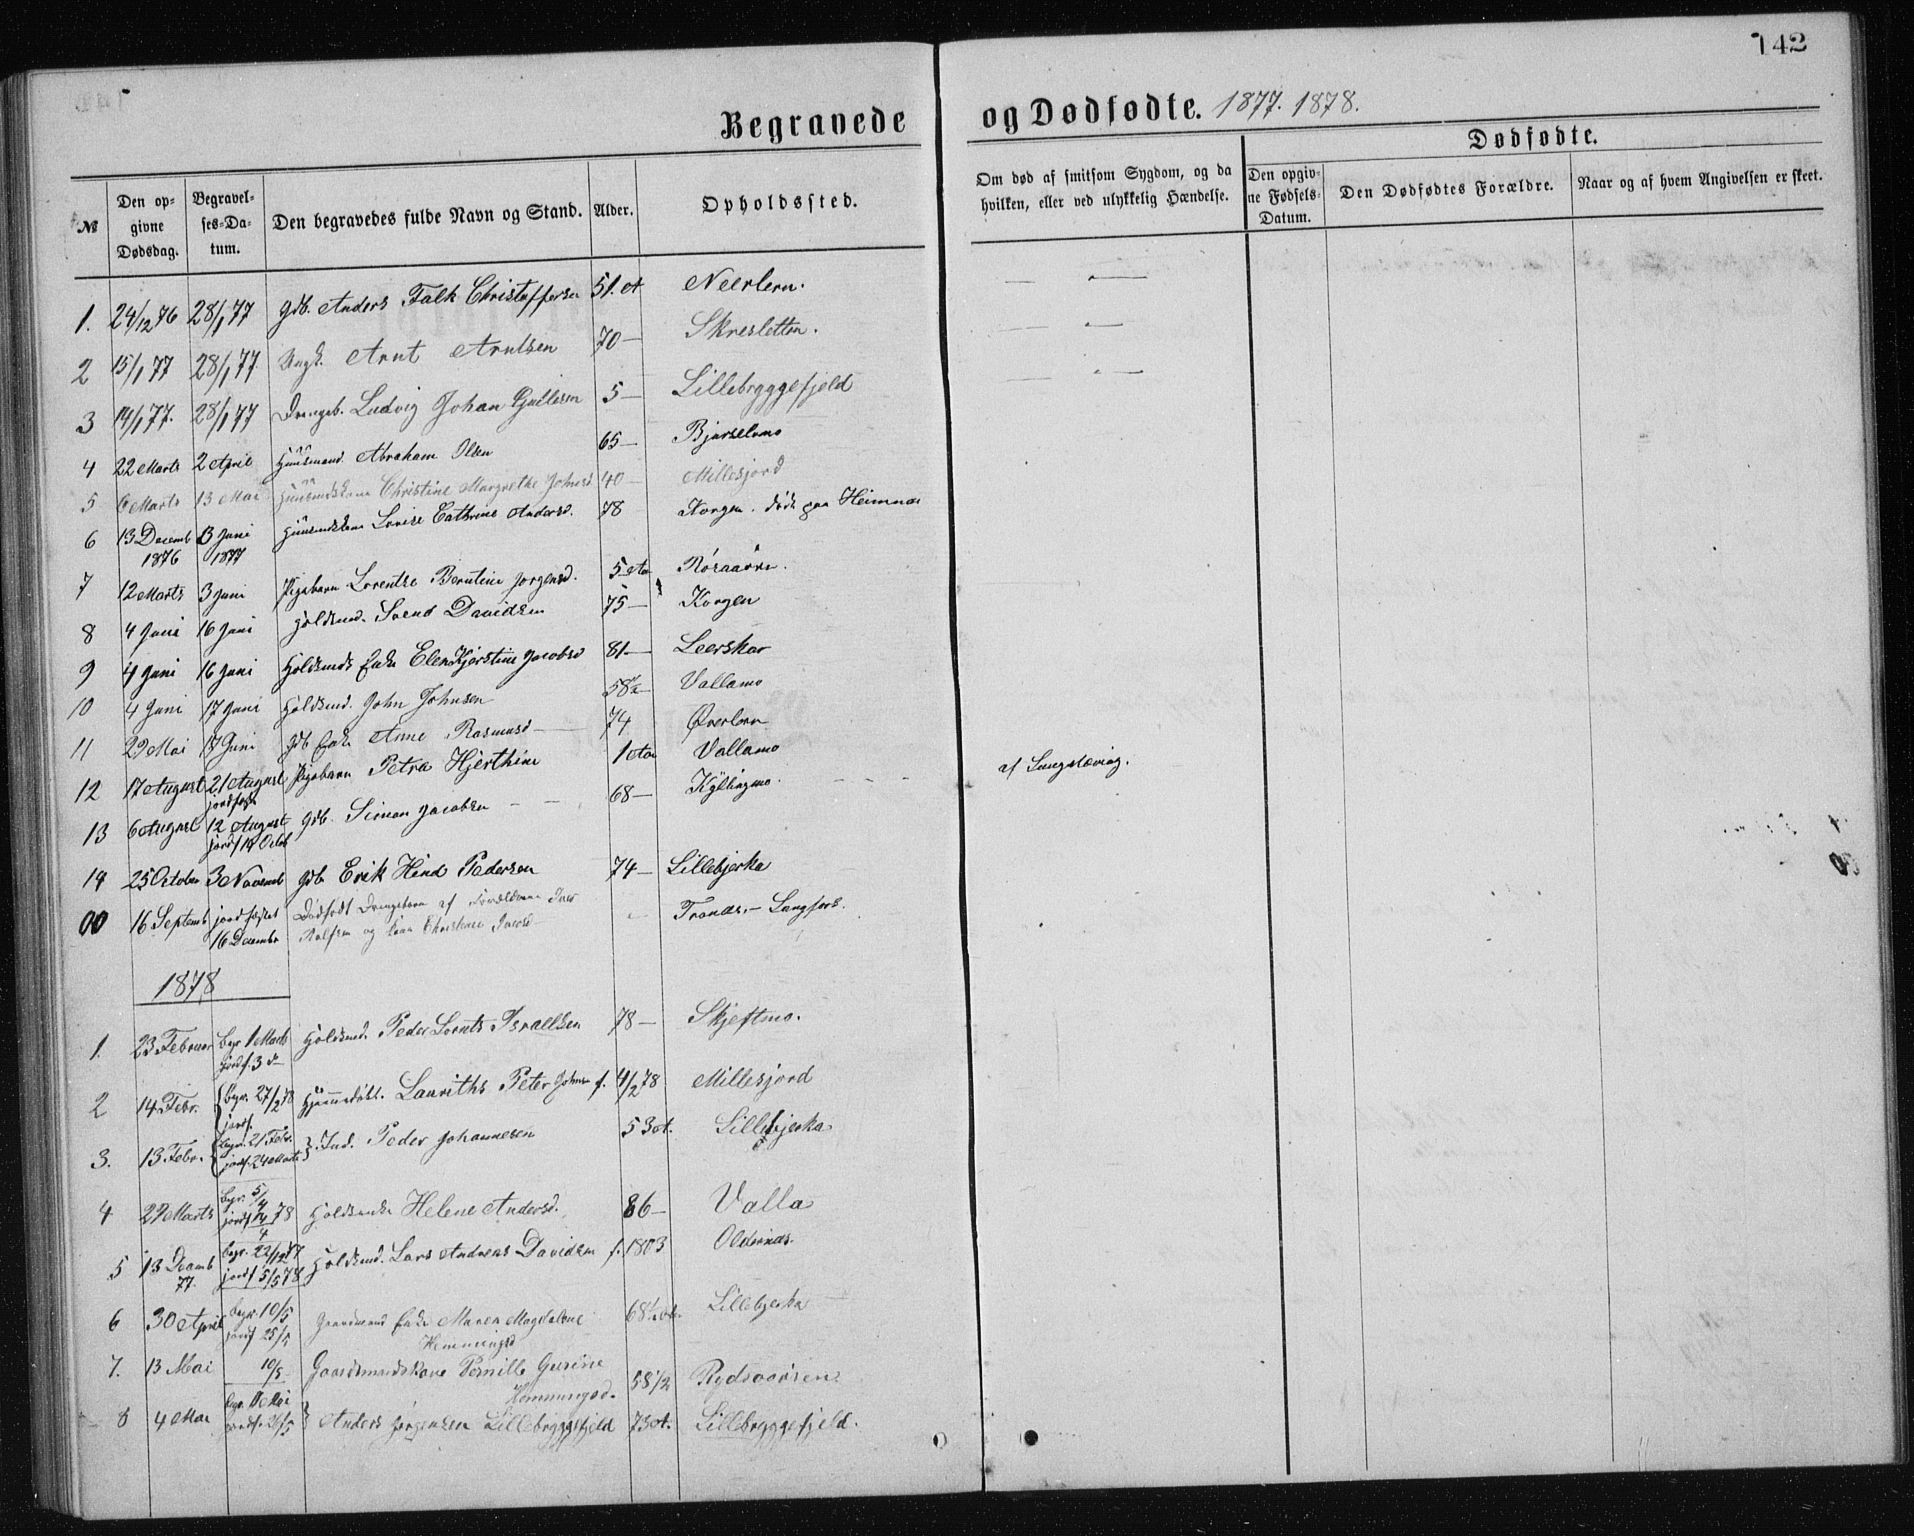 142
Begravede og Dødfødte. 1877. 1878.
Dødfødte.
№
Den opgivne Dødsdag.
Begravelses-Datum.
Den begravedes fulde Navn og Stand.
Alder.
Opholdssted.
Om død af smitsom Sygdom, og da hvilken, eller ved ulykkelig Hændelse.
Den opgivne Fødsels-Datum.
Den Dødfødtes Forældre.
Naar og af hvem Angivelsen er skeet.
1. 24/12 76 28/1 77 Gdb. Anders Falk Christoffersen 51. A Neerleren. — " —
2 15/1 77 28/1 77 Ungk. Arnt Arntsen 70 — Skresletten. — " —
3 14/1 77. 28/1 77 Drengeb. Ludvig Johan 5 — Lillebryggefjeld — " —
4 22 Marts 2 April Huusmand Abraham Olsen 65 —
5 6 Marts 13 Mai Christine Margrethe Johnsd. 40 — Millesjord
6 13 Decemb 1876 3 Juni 1877 Cathrine Andersd. 78 Korgen. døde paa Heimnæs
7 12 Marts 3 Juni Pigebarn Lorentse Berntine Jørgensd. 5 Røsaaøren.
8 4 Juni 16 Juni Holdsmd. Svend Davidsen 75 — Korgen
9 4 Juni 16 Juni Holdsmds Enke Elen Kjerstine Jacobsd 81 — Leerskar
10 4 Juni 17 Juni Holdsmd. John Johnsen 58½ — Vallamo
11 29 Mai 17 Juni Gdb Enke Anne Rasmusd — 74 Øverleren
12 17 August 21 August jordfæst Pigebarn Petra Hjerthine 1 Vallamo
af Lungelæving.
13 6 August 12 August jordf 14 Octob Gdb. Simon Jacobsen 68 — Kyllingmo.
14 25 October 3 Novemb Gdb Erik Hind Pedersen 74 — Lillebjerka
00 16 Septemb jordfæstet 16 Decembr Dødfødt Drengebarn af Forældrene Iver
Rolfsen og Christine
1878
1. 23 Februar begr 1 Marts jordf. 3 d Holdsmd. Peder Lornts Israelsen 78 — Skjeftmo.
2 14 Febr. begr. 27/2 78 jordf. Hjemmedøbt. Lauriths Peter Johnsen f. 4/2 78 Millesjord
3. 13 Febr. begr. 21 Febr. jordf. 24 Marts Ind. Peder Johannesen 53 A. Lillebjerka
4 29 Marts begr. 5/4 jordf 14/4 78 Helene Andersd. 86 — Valla
5 13 Decemb 77. begr. 22/12 77 jordf 5/5 78 Holdsmd. Lars Andreas Davidsen f. 1803 Oldernæs.
6 30 April begr. 10/5 jordf 25/5 Enke Maren Magdalene
Hemmingsd 68½ Lillebjerka
7. 13 Mai 10/5 Gaardsmandskone Pernille Gurine
Hemmingsd. 58½
8 4 Mai begr. 11 Mai jordf. 26/5 Anders Jørgensen Lillebryggefjeld 73 A. Lillebryggefjeld.